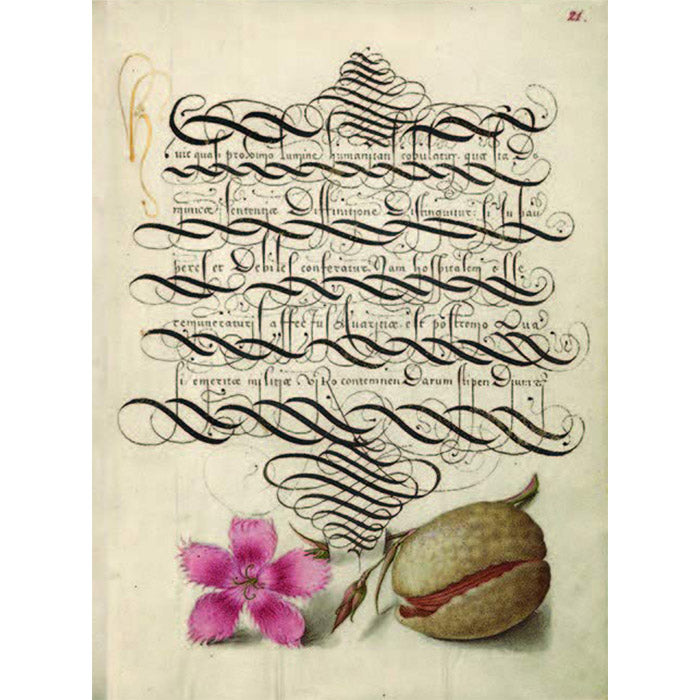 21.
iure quasi proximo lumine humanitati copulatur. quæ ita Do
minicæ sententiæ Diffinitione Distinguitur: si in pau
peres et Debiles conferatur. Nam hospitalem esse
remuneraturis affectus Avaritiæ est postremo Qua
si emeritæ militiæ viro contemnen Darum stipen Divitiæ